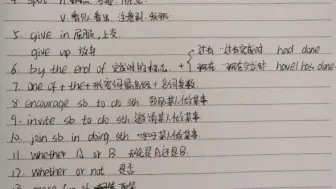 4. spot n.
v. 看见,看出,注意到,发现
5. give in 屈服,上交
give up 放弃
6. by the end of 完成时的标志. + { 过去 过去完成时 had done
现在 现在完成时 have/has done
7. one of + the + 形容词最高级 + 名词复数
8. encourage sb to do sth. 鼓励某人做某事
9. invite sb to do sth. 邀请某人做某事
10. join sb in doing sth. 某人做某事
11. whether A or B 无论是A还是B
12. whether or not 是否